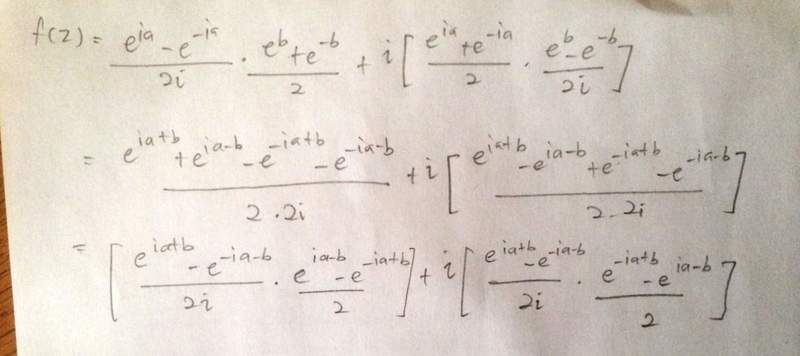 f(z) = \frac{e^{ia} - e^{-ia}}{2i} \cdot \frac{e^{b} + e^{-b}}{2} + i \left[ \frac{e^{ia} + e^{-ia}}{2} \cdot \frac{e^{b} - e^{-b}}{2i} \right]
= \frac{e^{ia+b} + e^{ia-b} - e^{-ia+b} - e^{-ia-b}}{2 \cdot 2i} + i \left[ \frac{e^{ia+b} - e^{ia-b} + e^{-ia+b} - e^{-ia-b}}{2 \cdot 2i} \right]
= \left[ \frac{e^{ia+b} - e^{-ia-b}}{2i} \cdot \frac{e^{ia-b} - e^{-ia+b}}{2} \right] + i \left[ \frac{e^{ia+b} - e^{-ia-b}}{2i} \cdot \frac{e^{-ia+b} - e^{ia-b}}{2} \right]